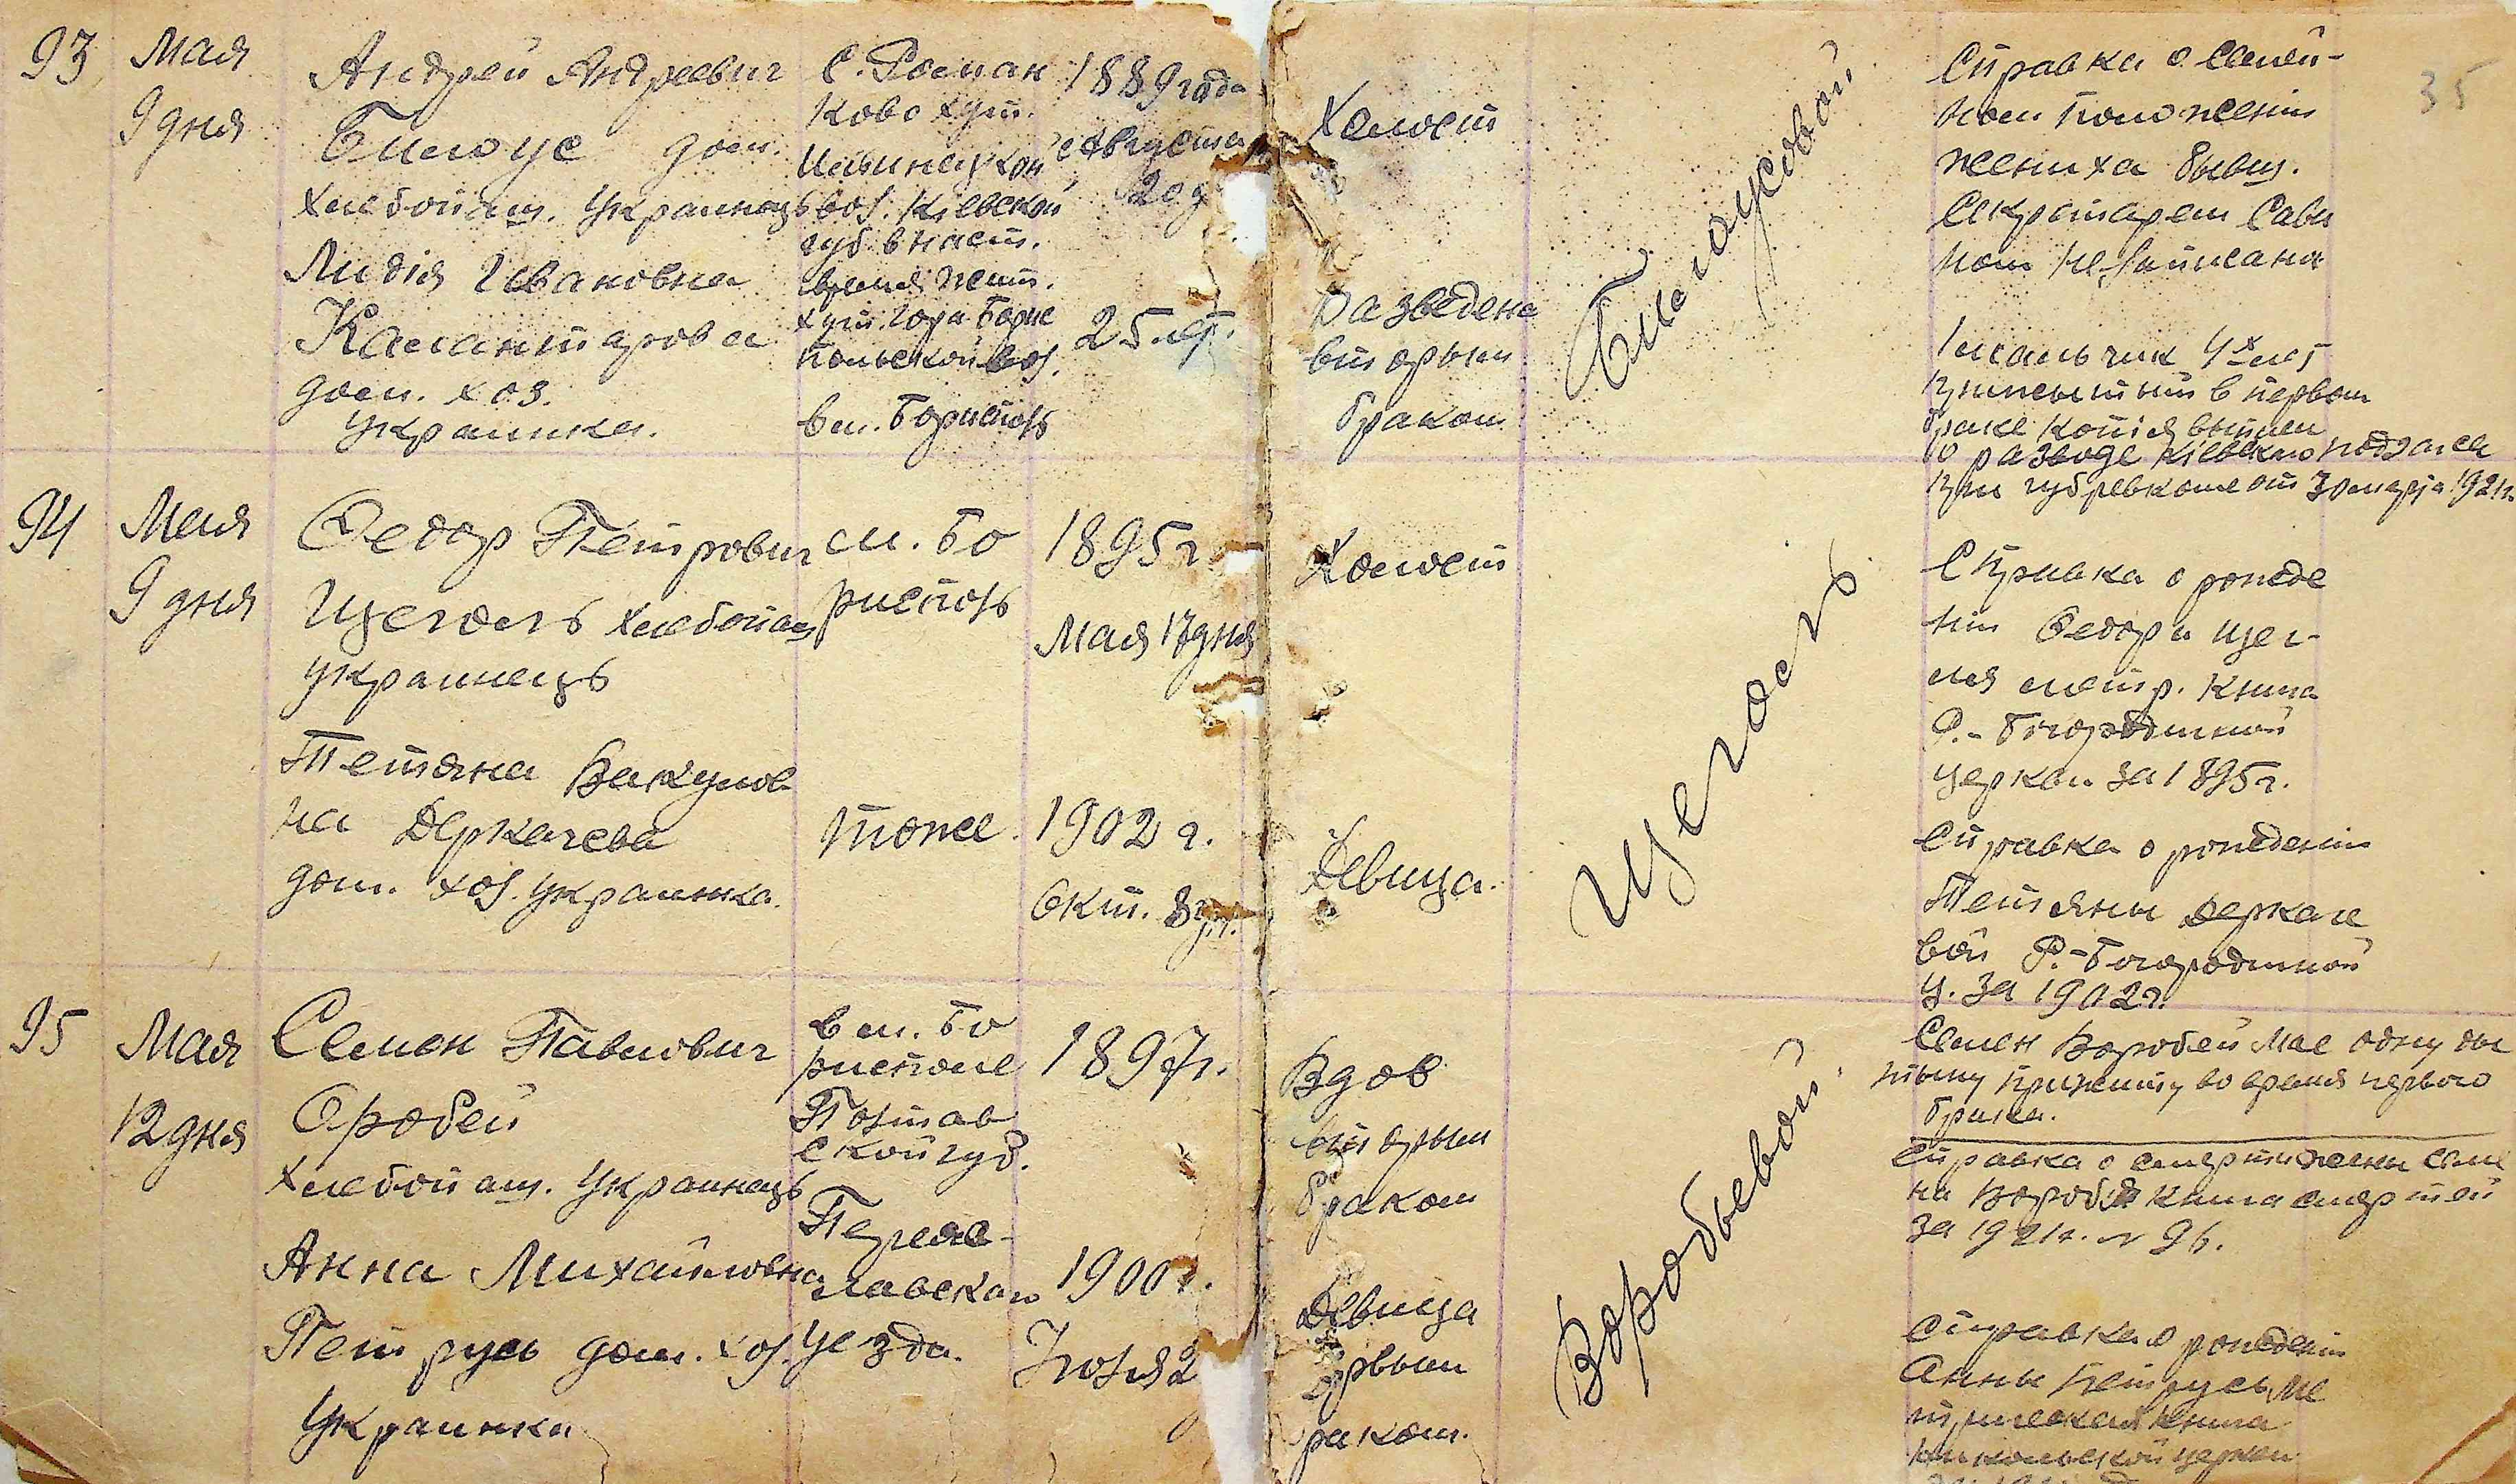 93
Мая
9 дня
Андрей Андреевич
Билоус дом.
хлебопаш. Украинецъ
Лидія Ивановна
Калантарова
дом. хоз.
Украинка.
С. Роман
ково хут.
вол. Кіевской
губ. в наст.
время жит.
хут. Гора Борис
польской вол.
в м. Бориспол
1889 года
Августа
20 д
25 л.
Холост
Разведена
вторым
браком
Билоусовой
Справка о семей-
ном положении
жениха бывш.
Секретарем
35
1 мальчик 4х лет
прижитый в первом
браке копія выписи
о разводе Кіевского подзагса
при губревкоме от 30 марта 1921 г.
94
Мая
9 дня
Федор Петрович
Щеголь хлебопаш
украинецъ
Тетяна Вакулов
на Деркачева
дом. хоз. Украинка.
м. Бо
рисполь
тоже.
1895 г
Мая 17 дня
1902 г.
Окт. 8 дн.
Холост
Девица.
Щеголь
Справка о рожде
нии Федора Щег-
ля метр. Книга
Р.-Богородичной
церкви за 1895 г.
Справка о рождении
Тетяны Деркаче
вой Р.-Богородичной
ц. за 1902 г.
95
Мая
12 дня
Семен Павлович
Оробей
хлебопаш. Украинецъ
Анна Михайловна
Петрусь дом. хоз.
Украинка
в м. Бо
рисполе
Полтав
ской губ.
Переяс-
лавского
уезда.
1897 г.
1900 г.
Іюля 2
Вдов
вторым
браком
Девица
ервым
раком.
Воробьевой
Семен Воробей мае одну ды
тыну прижиту во время первого
брака.
Справка о смерти жены Семе
на Воробья Книга смертей
за 1921 г. № 96.
Справка о рождении
Анны Петрусь Ме
трическая Книга
Никольской церкви